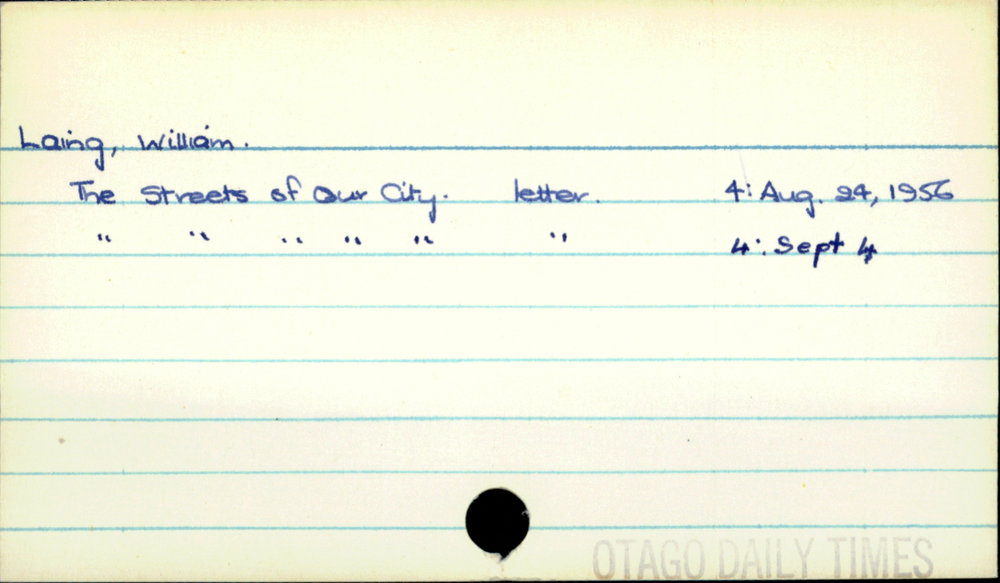 Laing, William.
The Streets of Our City. letter. 4: Aug. 24, 1956
" " " " " " 4: Sept 4
OTAGO DAILY TIMES